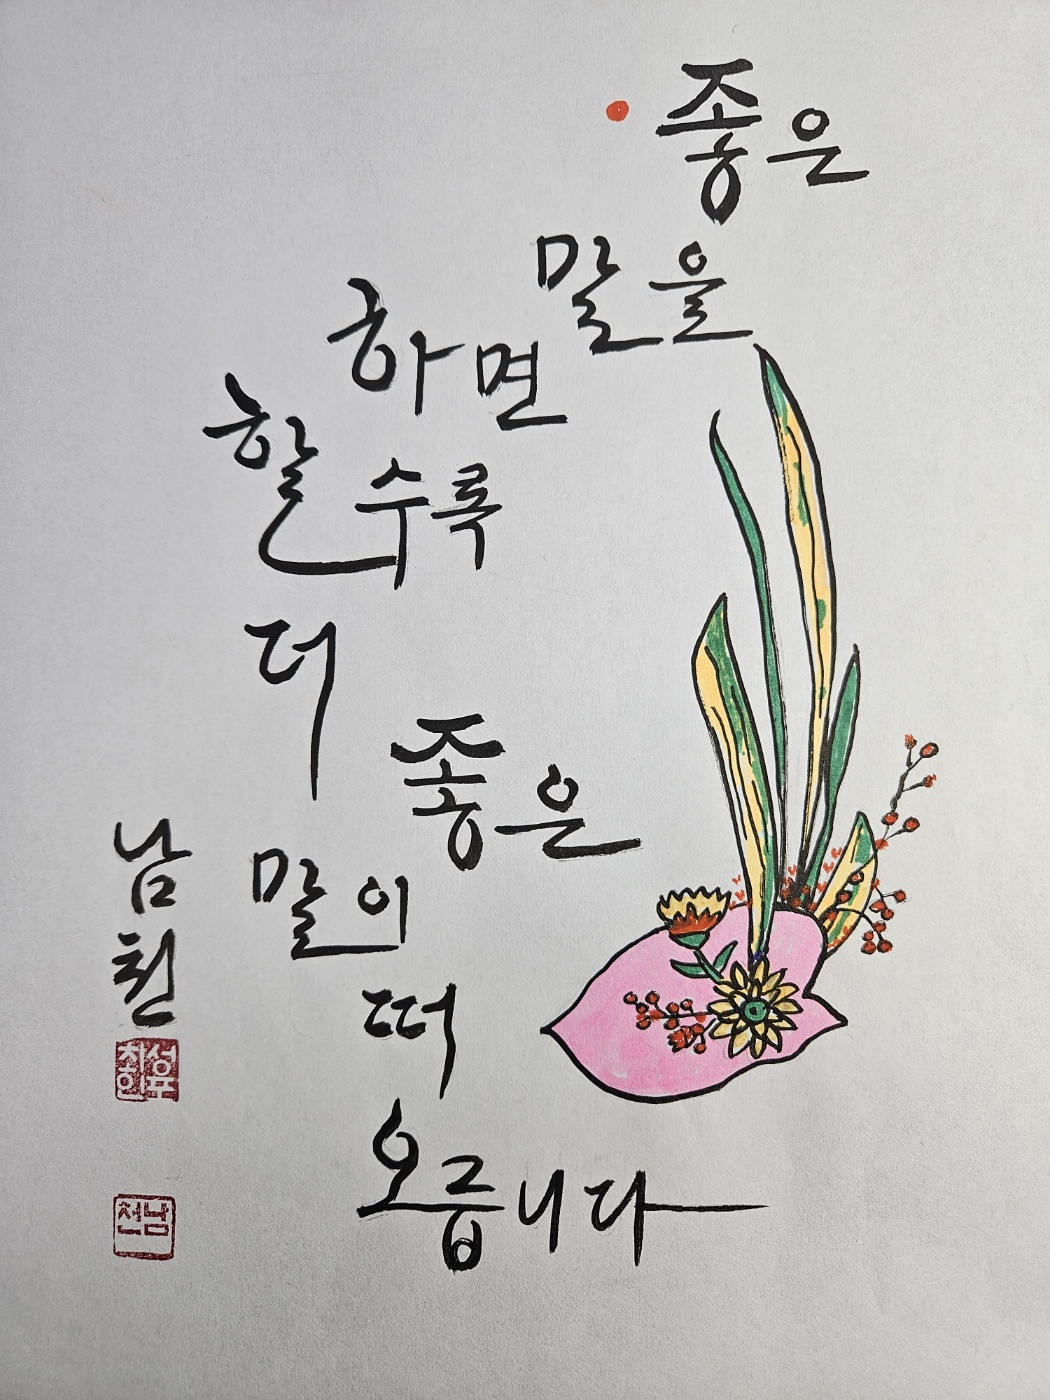 좋은
말을
하면
할수록
더
좋은
말이
떠
오릅니다
남천
남천